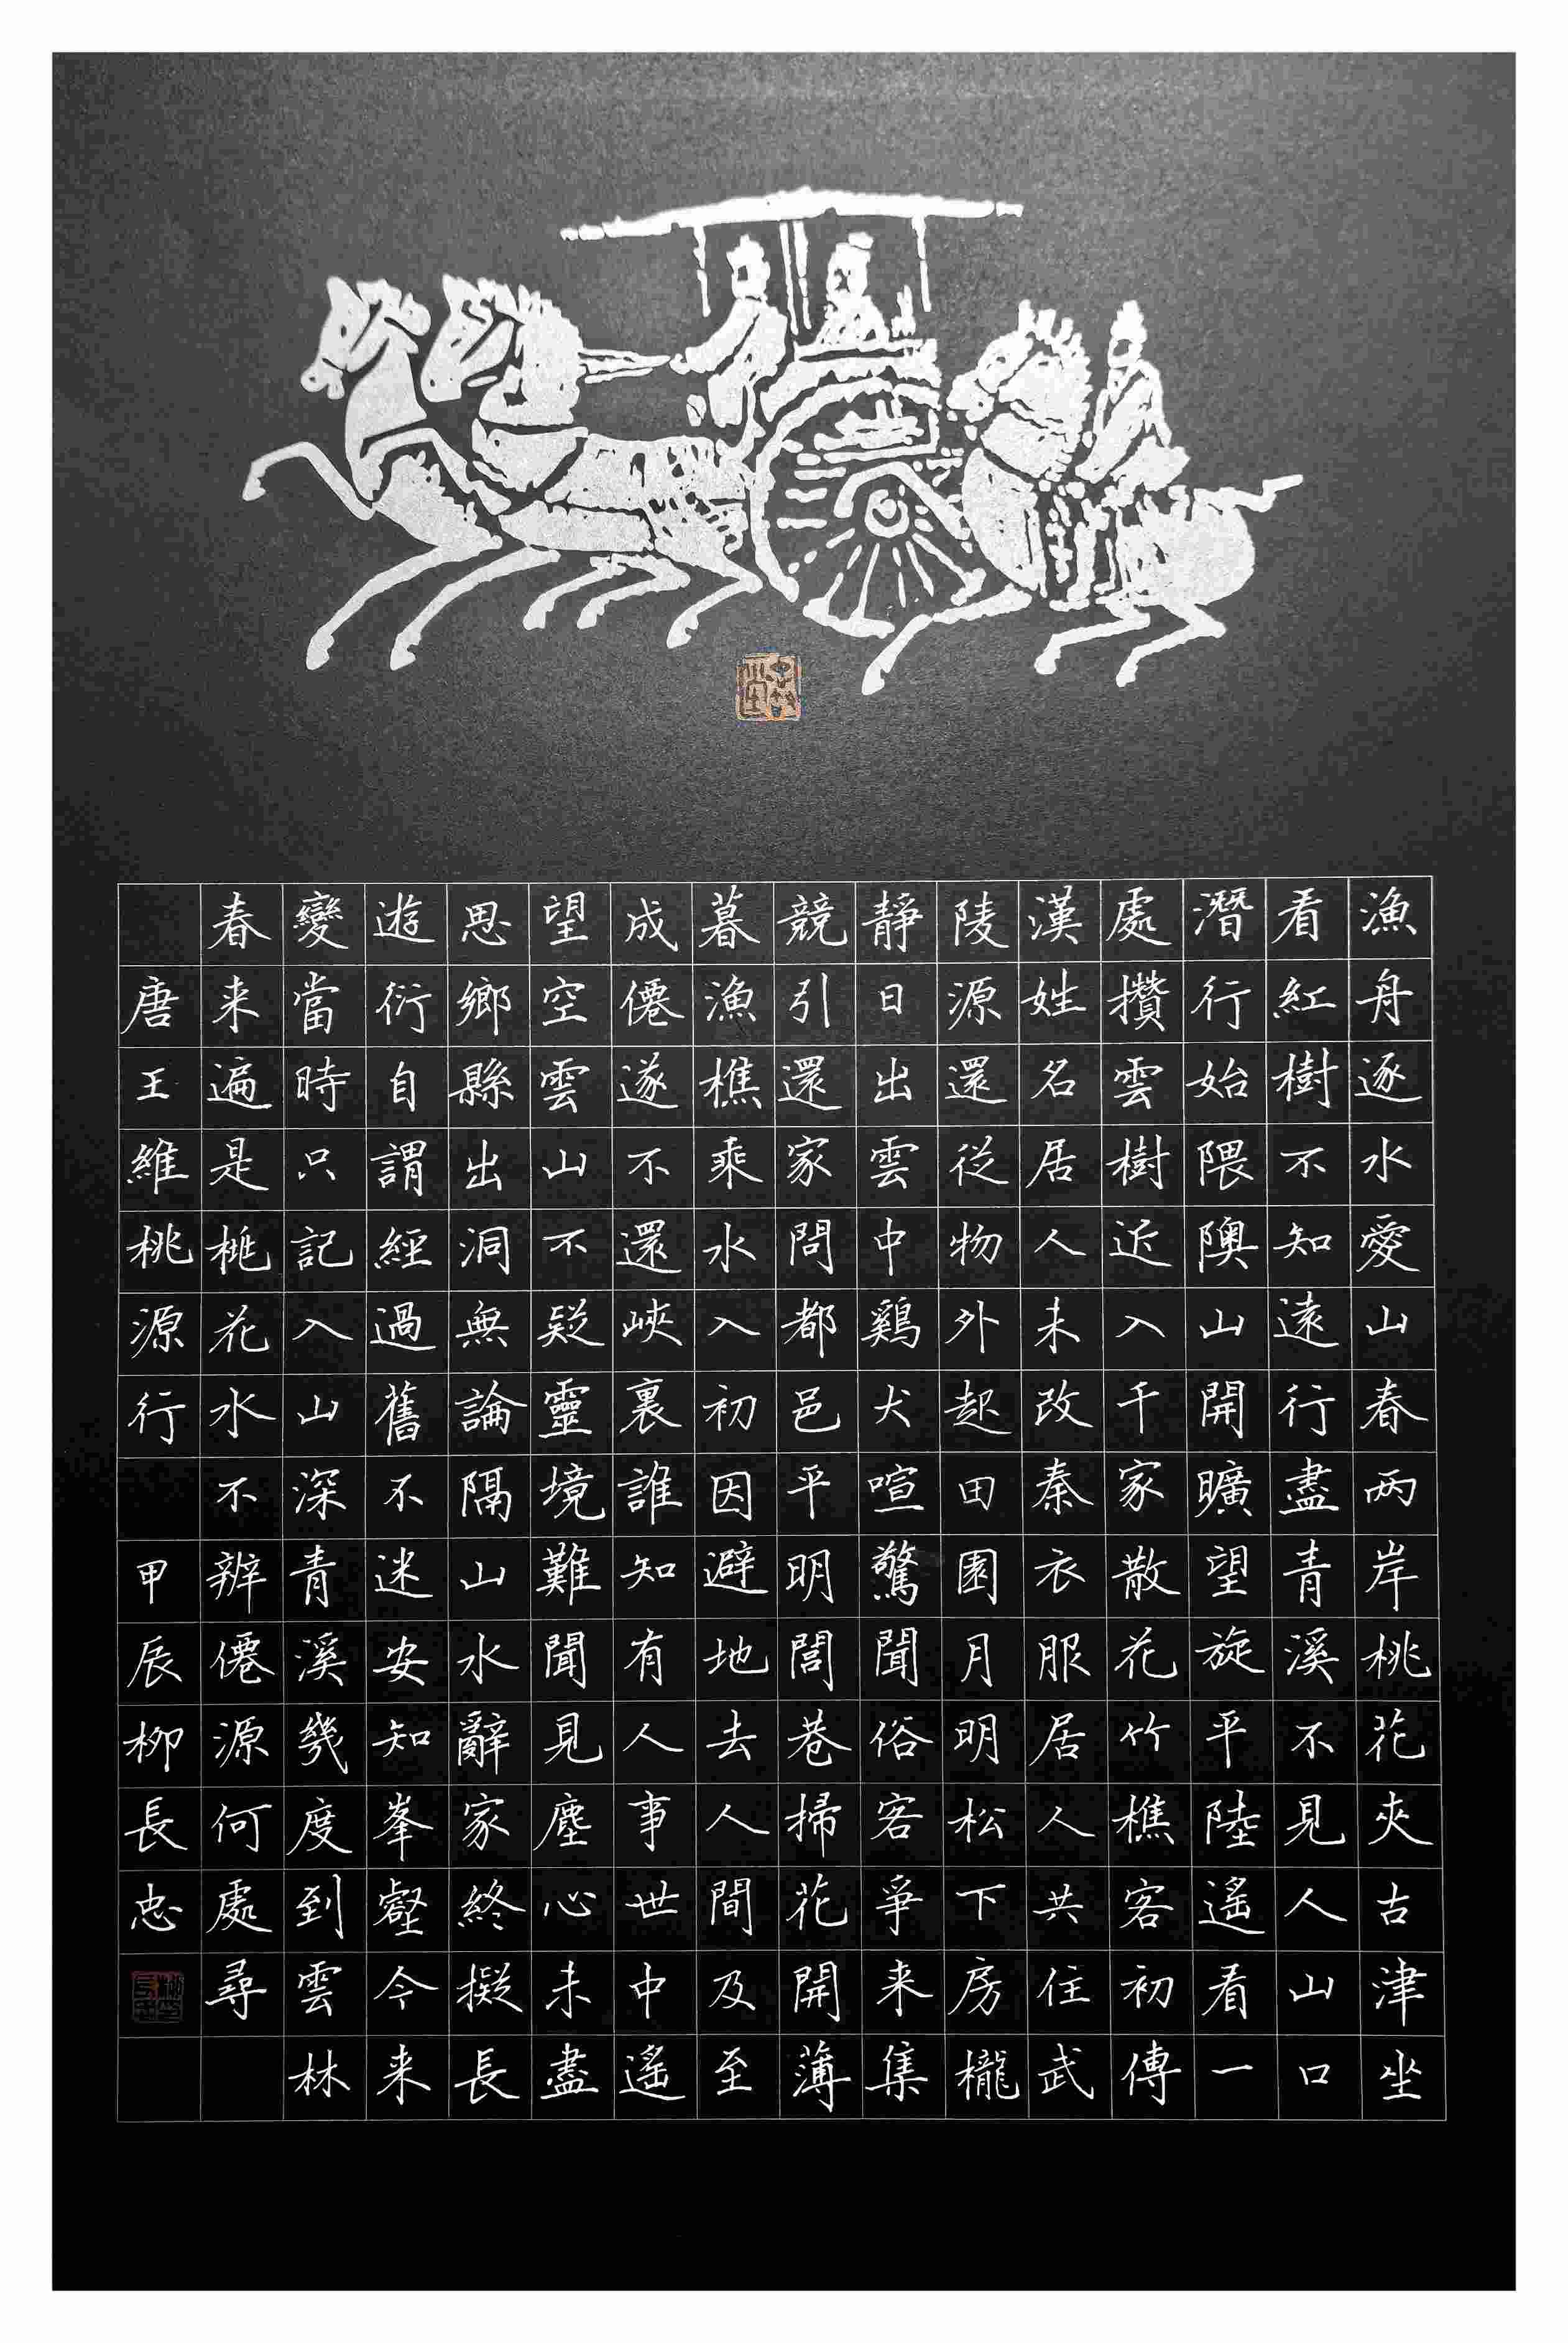 漁舟逐水愛山春两岸桃花夾古津坐
看紅樹不知遠行盡青溪不見人山口
潛行始隈隩山開曠望旋平陸遙看一
處攢雲樹近入千家散花竹樵客初傳
漢姓名居人未改秦衣服居人共住武
陵源還從物外起田園月明松下房櫳
靜日出雲中鷄犬喧驚聞俗客爭来集
競引還家問都邑平明閭巷掃花開薄
暮漁樵乘水入初因避地去人間及至
成僊遂不還峽裏誰知有人事世中遙
望空雲山不疑靈境難聞見塵心未盡
思鄉縣出洞無論隔山水辭家終擬長
遊衍自謂經過舊不迷安知峯壑今来
變當時只記入山深青溪幾度到雲林
春来遍是桃花水不辨僊源何處尋
唐王維桃源行 甲辰柳長忠